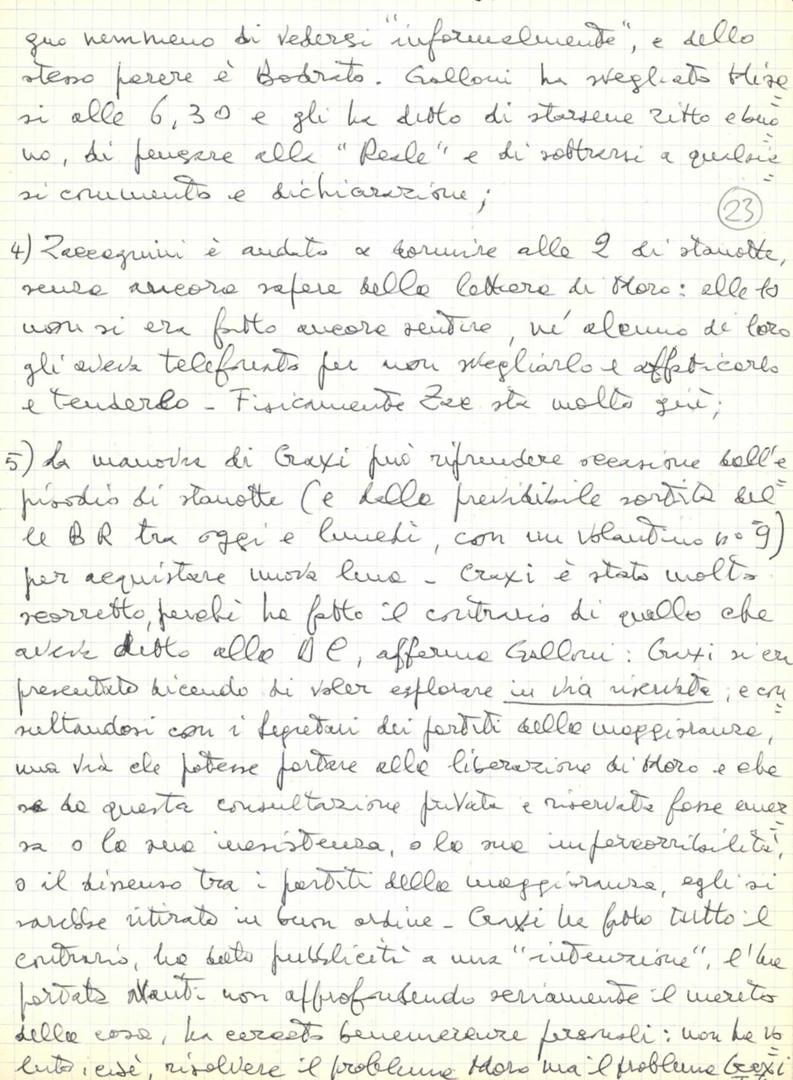 guo nemmeno di vedersi "informalmente", e dello
stesso parere è Bodrato. Galloni ha svegliato Misa=
si alle 6,30 e gli ha detto di starsene zitto e buo=
no, di pensare alla "Reale" e di sottrarsi a qualsia=
si commento e dichiarazione;
23
4) Zaccagnini è andato a dormire alle 2 di stanotte,
senza ancora sapere della lettera di Moro: alle 10
non si era fatto ancora sentire, né alcuno di loro
gli aveva telefonato per non svegliarlo e affaticarlo
e tenderlo - Fisicamente Zac sta molto giù;
5) La manovra di Craxi può riprendere occasione dall'e=
pisodio di stanotte (e dalla prevedibile sortita del=
le BR tra oggi e lunedì, con un volantino n° 9)
per acquistare nuova lena - Craxi è stato molto
scorretto, perché ha fatto il contrario di quello che
aveva detto alla DC, afferma Galloni: Craxi si era
presentato dicendo di voler esplorare in via riservata, e con=
sultandosi con i segretari dei partiti della maggioranza,
una via che potesse portare alla liberazione di Moro e che
se da questa consultazione privata e riservata fosse emer=
sa o la sua inesistenza, o la sua impercorribilità,
o il dissenso tra i partiti della maggioranza, egli si
sarebbe ritirato in buon ordine - Craxi ha fatto tutto il
contrario, ha dato pubblicità a una "intenzione", l'ha
portata avanti non approfondendo seriamente il merito
della cosa, ha cercato benemerenze personali: non ha vo=
luto, cioè, risolvere il problema Moro ma il problema Craxi